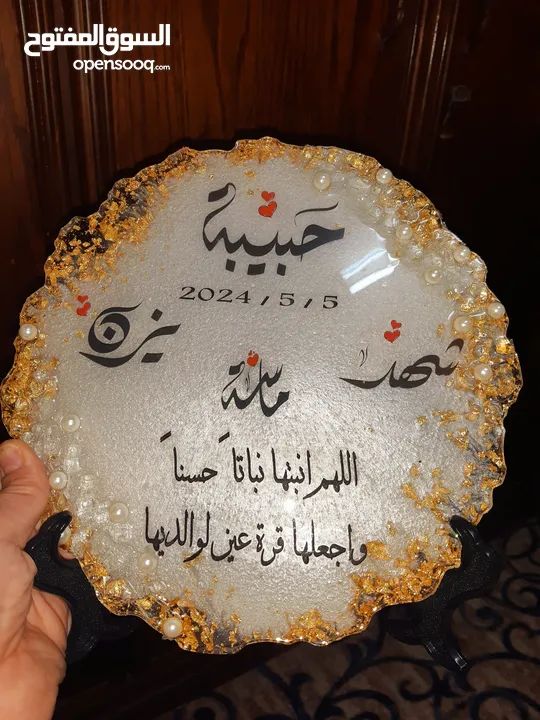 السوق المفتوح
opensooq.com
حبيبة
2024 / 5 / 5
يزن
شهد
ماسة
اللهم انبتها نباتاً حسناً
واجعلها قرة عين لوالديها